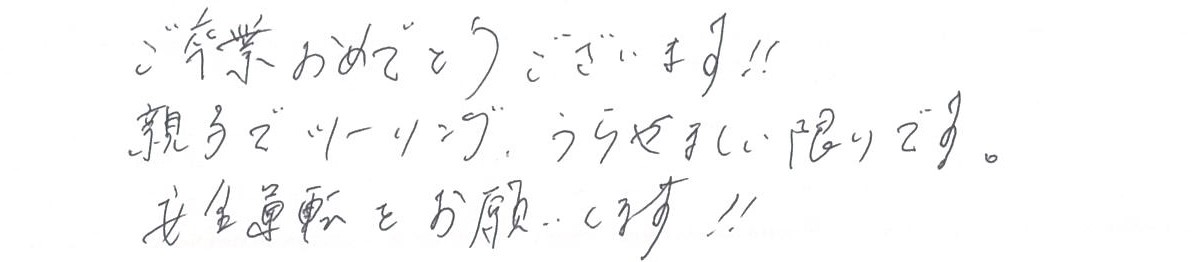 ご卒業おめでとうございます!!
親子でツーリング、うらやましい限りです。
安全運転をお願いします!!